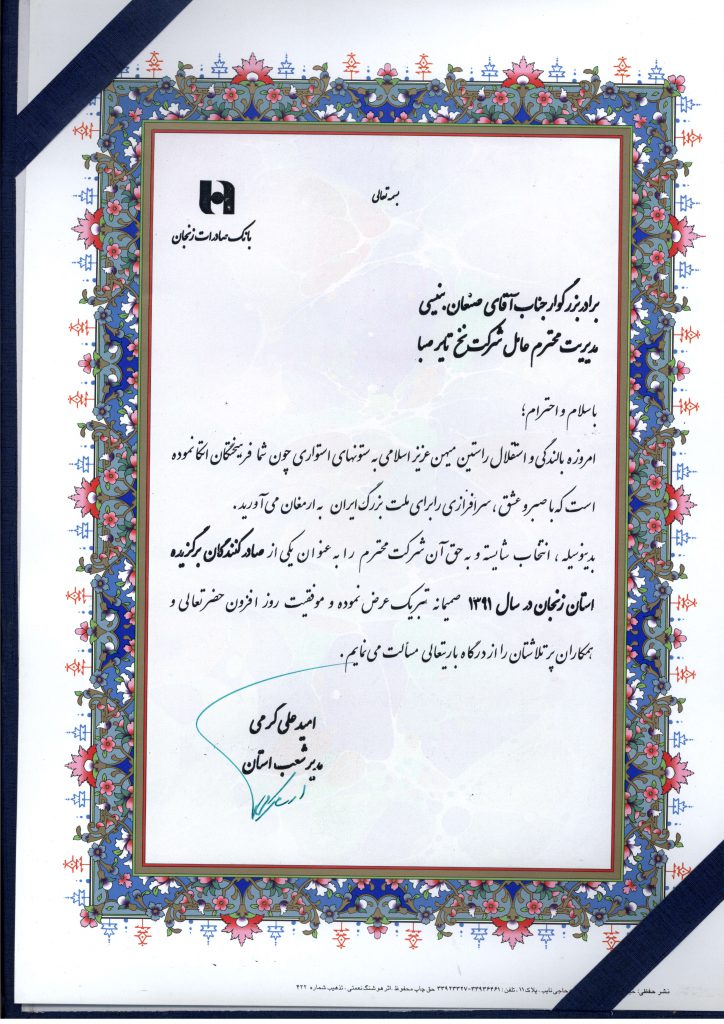 بسمه تعالی
بانک صادرات زنجان
برادر بزرگوار جناب آقای صنعان بنیسی
مدیریت محترم عامل شرکت نخ تایر صبا
با سلام و احترام؛
امروزه بالندگی و استقلال راستین میهن عزیز اسلامی به ستونهای استواری چون شما فرهیختگان اتکا نموده
است که با صبر و عشق ، سرافرازی را برای ملت بزرگ ایران به ارمغان می آورید .
بدینوسیله ، انتخاب شایسته و به حق آن شرکت محترم را به عنوان یکی از صادرکنندگان برگزیده
استان زنجان در سال ۱۳۹۱ صمیمانه تبریک عرض نموده و موفقیت روز افزون حضرتعالی و
همکاران پر تلاشتان را از درگاه باریتعالی مسألت می نمایم .
امید علی کرمی
مدیر شعب استان
نشر حفظی: حاجی نایب . پلاک ۱۱ . تلفن : ۳۳۹۳۶۴۶۱-۳۳۹۲۳۳۲۷ حق چاپ محفوظ . اثر هوشنگ نعمتی . تذهیب شماره ۴۲۲